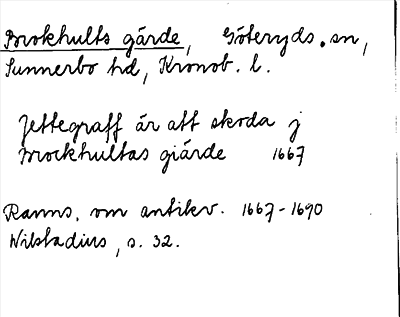 Brokhults gärde, Göteryds sn,
Sunnerbo hd, Kronob. l.
Jettegraff är att skoda j
Brockhultas giärde 1667
Ranns. om antikv. 1667-1690
Wilstadius, s. 32.